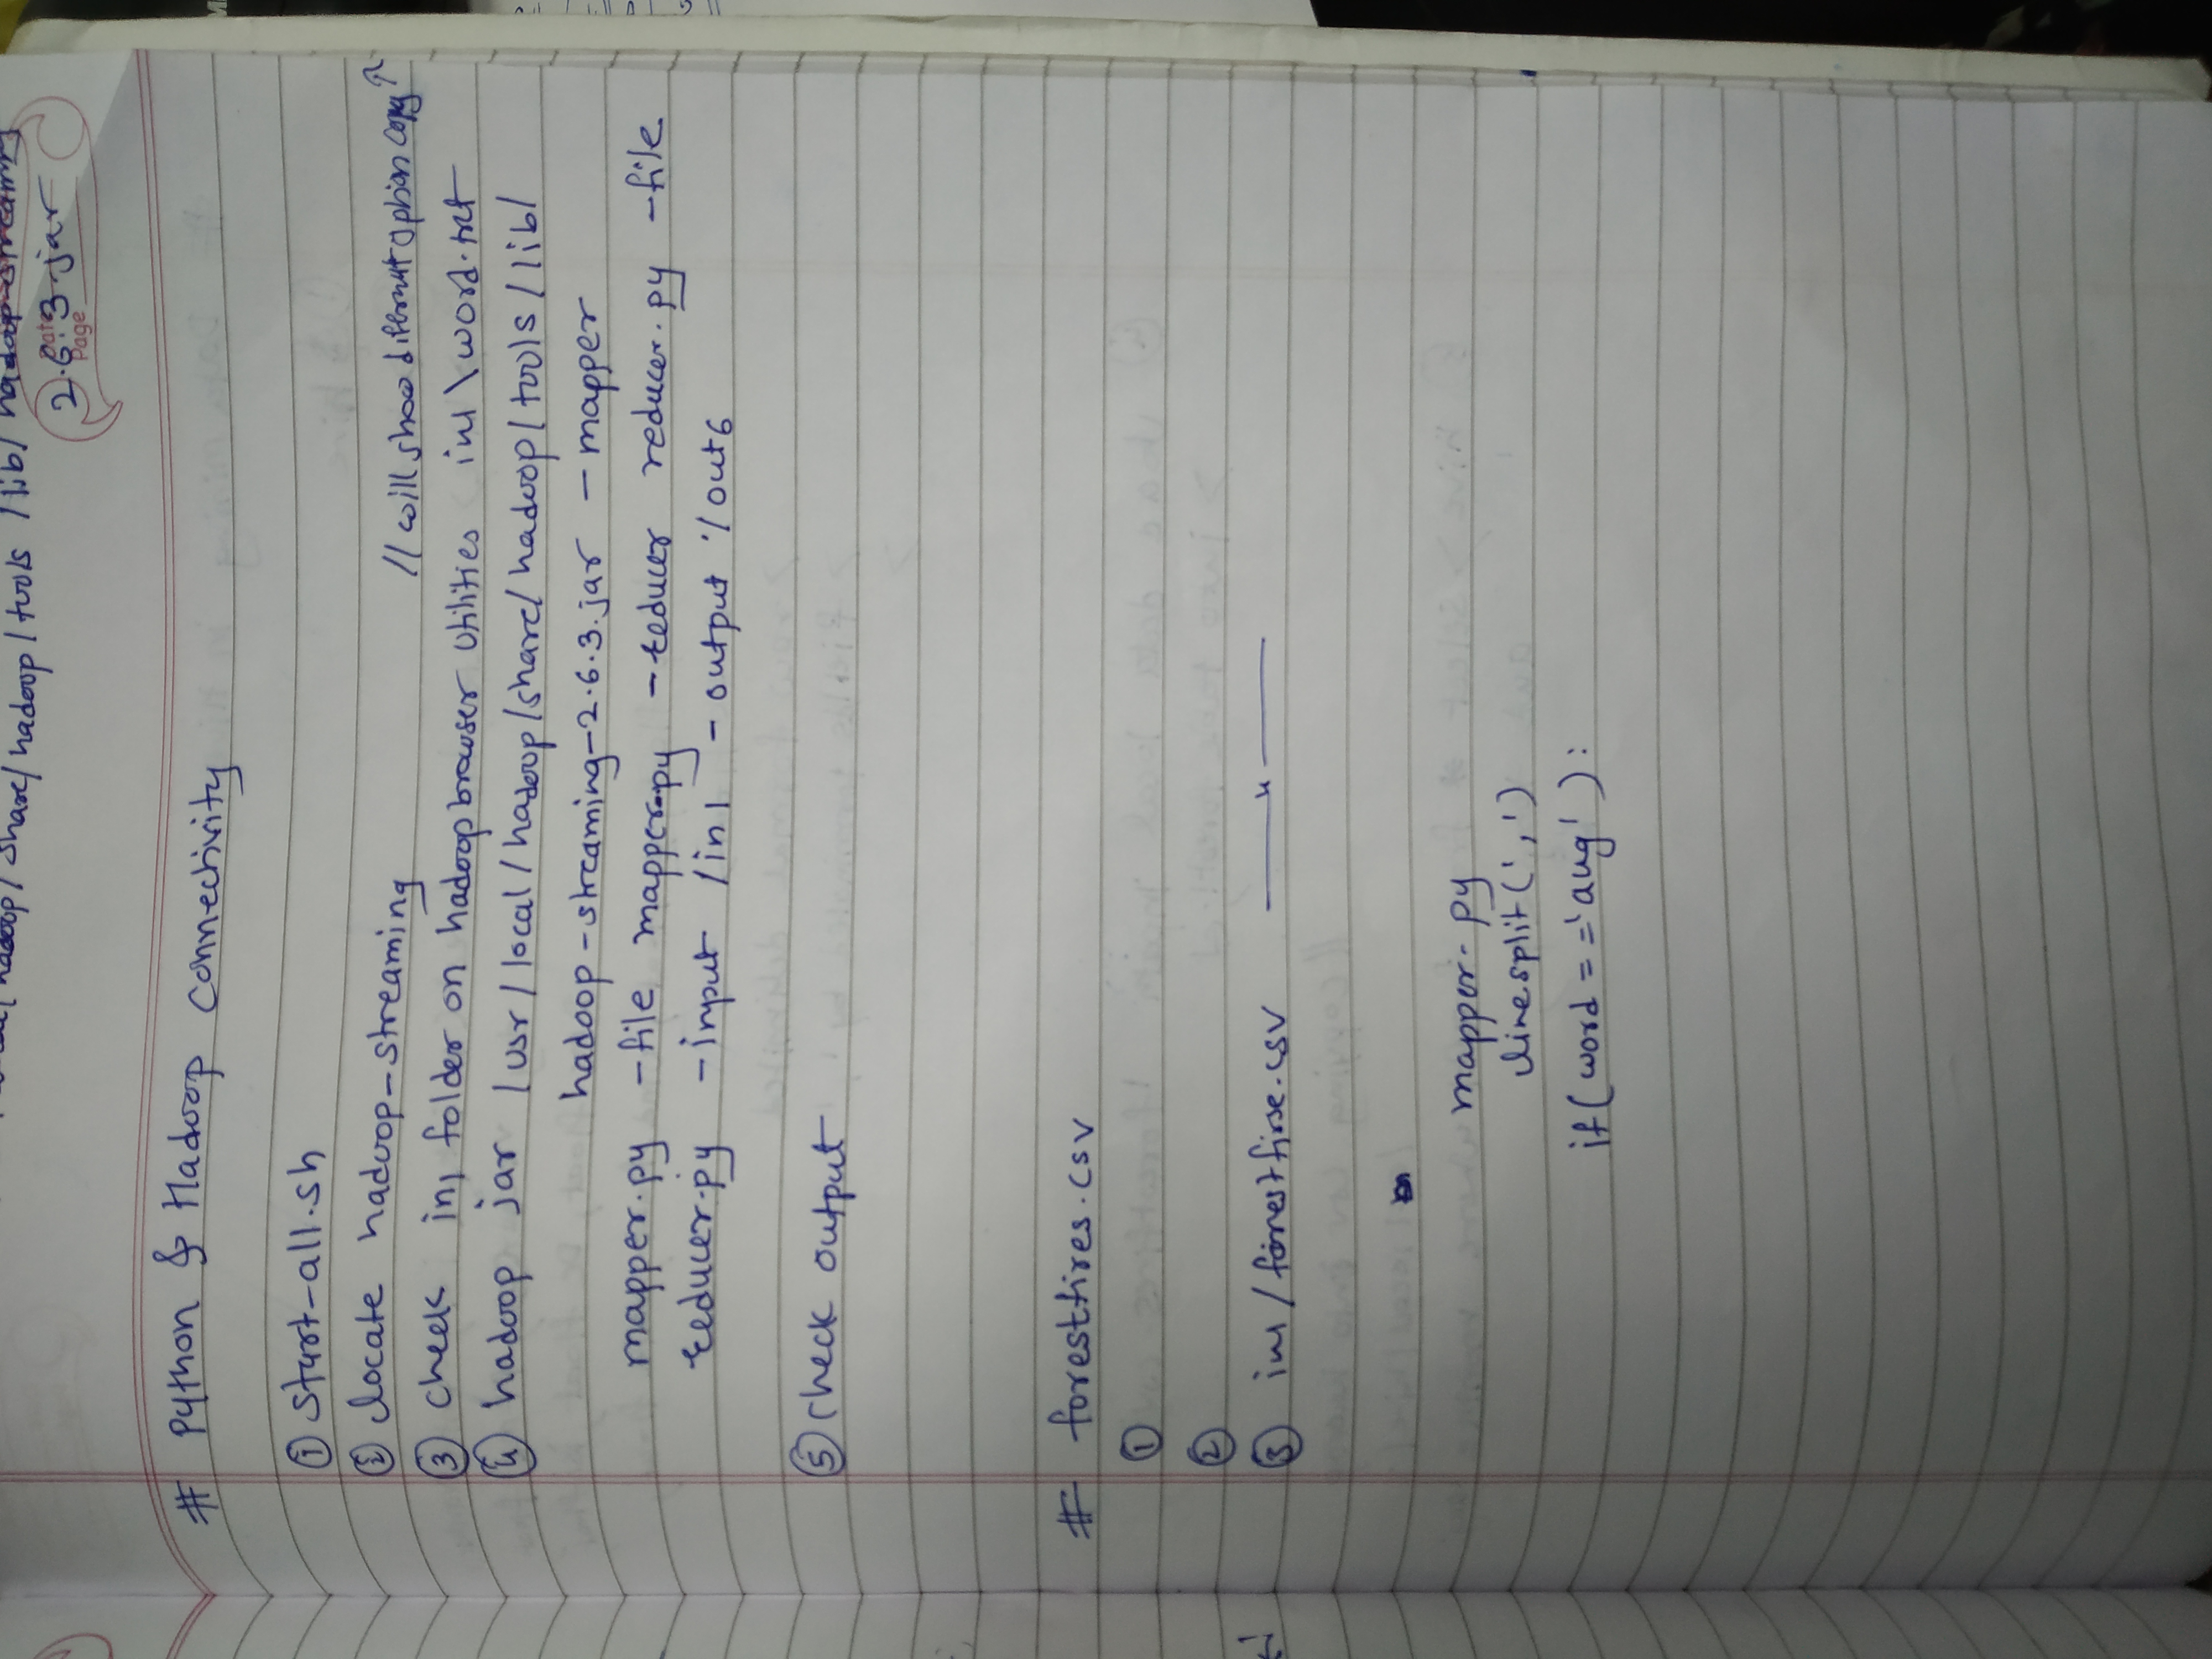 hadoop/ share/ hadoop / tools / lib/ hadoop-streaming
Date
2.6.3.jar
Page
# Python & Hadoop Connectivity
① start-all.sh
② locate hadoop-streaming // will show different option copy ↑
③ check in1 folder on hadoop browser Utilities in1 \ word.txt
④ hadoop jar /usr/local/hadoop/share/hadoop/tools/lib/
hadoop-streaming-2.6.3.jar -mapper
mapper.py -file mapper.py -reducer reducer.py -file
reducer.py -input /in1 -output /out6
⑤ check output
# forestfires.csv
①
②
③ in1/forestfirse.csv
mapper.py
line split(',')
if(word=='aug'):